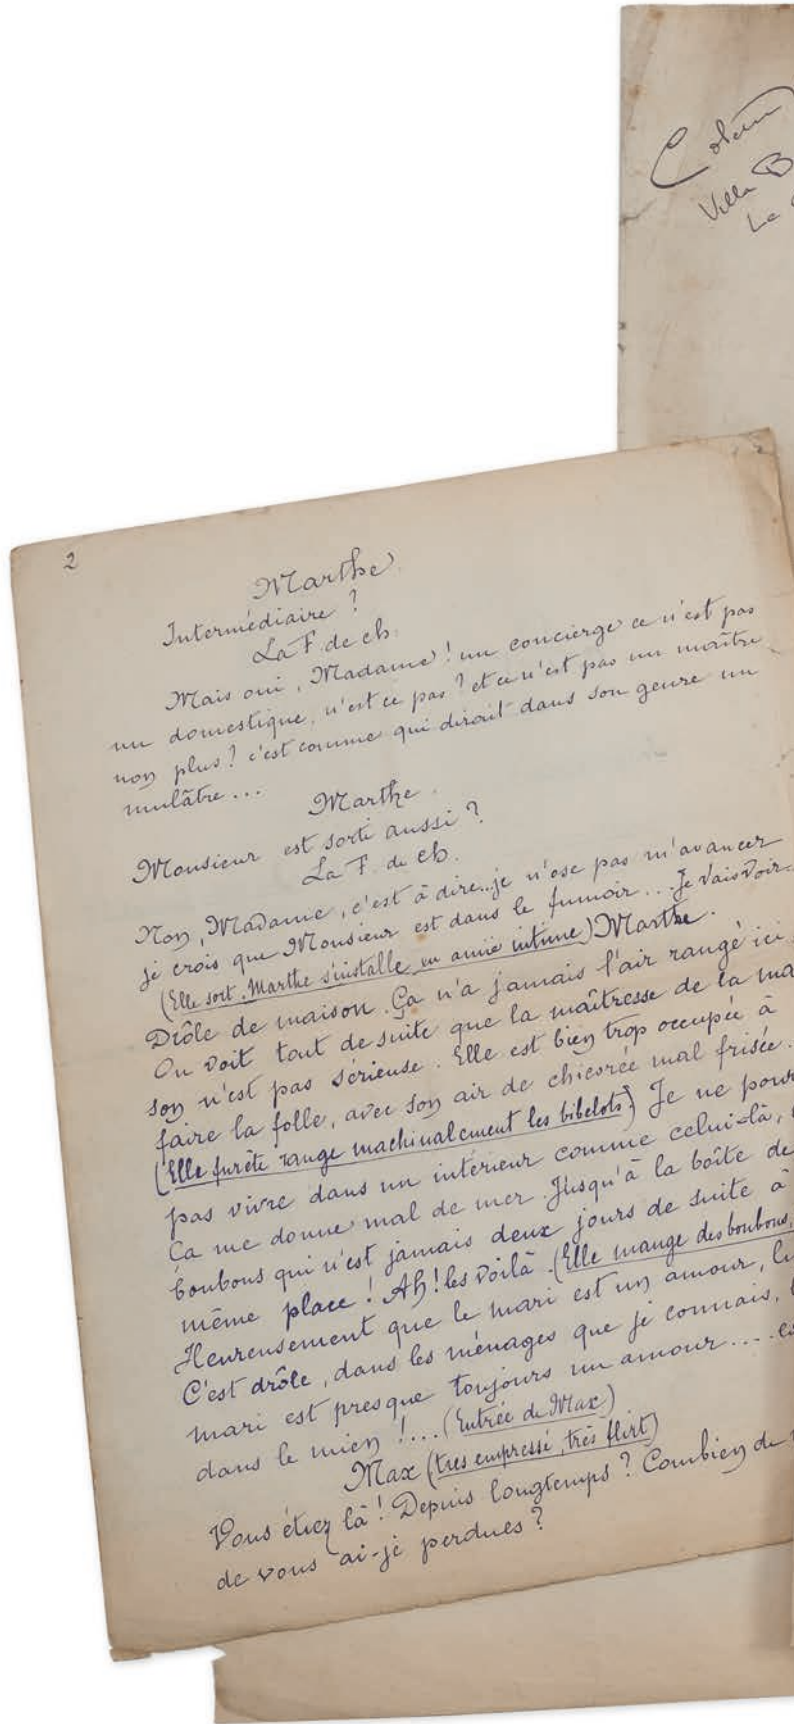 Villa B
2
Marthe
Intermédiaire ?
La F. de ch.
Mais oui, Madame ! un concierge ce n'est pas
un domestique, n'est ce pas ? et ce n'est pas un maître
non plus ? c'est comme qui dirait dans son genre un
mulâtre...
Marthe.
Monsieur est sorti aussi ?
La F. de ch.
Non, Madame, c'est à dire...je n'ose pas m'avancer
je crois que Monsieur est dans le fumoir... Je vais voir.
(Elle sort. Marthe s'installe en amie intime) Marthe.
Drôle de maison. Ça n'a jamais l'air rangé ici.
On voit tout de suite que la maîtresse de la mai
son n'est pas sérieuse. Elle est bien trop occupée à
faire la folle, avec son air de chicorée mal frisée.
(Elle furète range machinalement les bibelots) Je ne pour
pas vivre dans un intérieur comme celui-là,
Ça me donne mal de mer. Jusqu'à la boîte de
bonbons qui n'est jamais deux jours de suite à
même place ! Ah ! les voilà. (Elle mange des bonbons,
Heureusement que le mari est un amour, lu
C'est drôle, dans les ménages que je connais, l
mari est presque toujours un amour.... ex
dans le mien !... (Entrée de Max)
Max (très empressé, très flirt)
Vous étiez là ! Depuis longtemps ? Combien de
de vous ai-je perdues ?